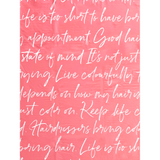 life is too short to have boring
y appointment. Good hair
state of mind It's not just
oring Live colourfully t
depends on how my hair is
ust color on. Keep life c
d. Hairdressers bring color
boring hair. Life is too sho